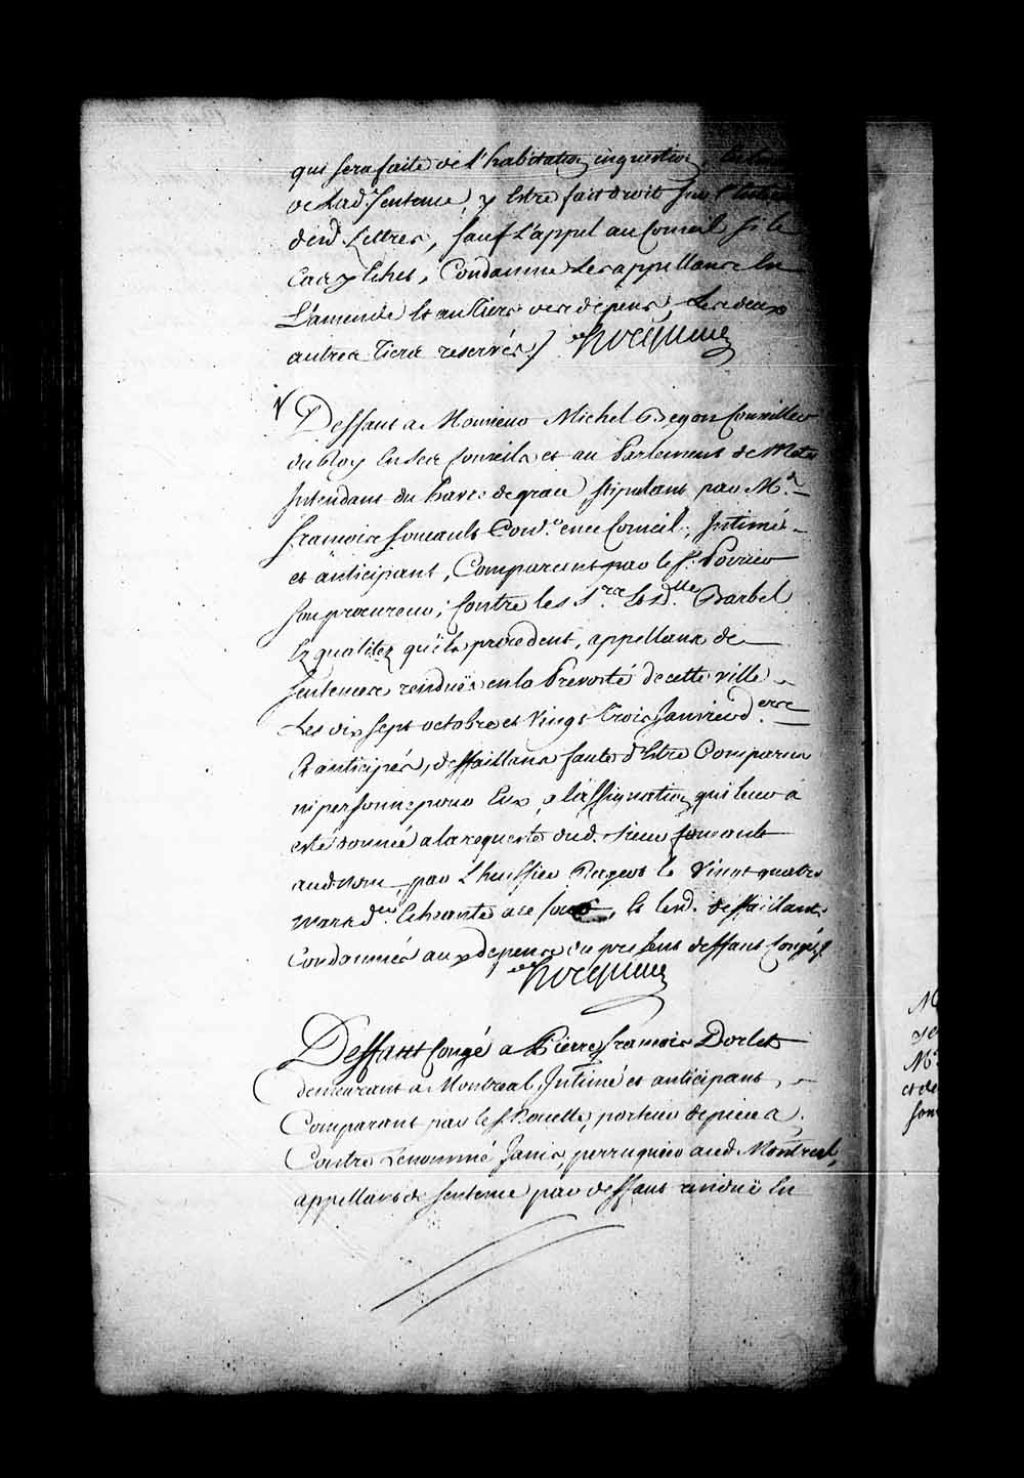 qui sera faite de l'habitation enquestion,
de Lad. Sentence, y Estre fait droit sur
desd. Lettres, sauf L'appel au Conseil si le
Cas y Echet, Condamne Les appellans En
L'amende Et au Tiers des depens, Les deux
autres Tiers reservés ./. Hocquart
Deffaut a Monsieur Michel Begon Conseiller
du Roy En ses Conseils et au Parlement de Metz
Intendant du havre de grace, stipulant par M.
françois foucault Con.er en ce Conseil, Intimé
et anticipant, Comparant par le S. Poirier
son procureur; Contre les S.rs Et D.lle Barbel
Es qualitez qu'ils procedent, appellans de
sentences renduës en la Prevosté de cette ville
Les dix sept octobre et Vingt Trois Janvier d.ers
Et anticipés, deffaillans faute d'Estre Comparus
ni personne pour Eux, a l'assignation qui leur a
esté donnée a la requeste dud. sieur foucault
aud. nom, par L'huissier Pageot le Vingt quatre
mars d.er Echeante a ce jour, Et lesd. deffaillans
Condamnés aux depens du present deffaut Congé ./.
Hocquart
Deffaut Congé a Pierre françois Dorlet
demeurant a Montreal, Intimé et anticipant,
Comparant par le S. porteur de pieces,
Contre Le nommé Janis, perruquier aud. Montreal,
appellant de sentence par deffaut renduë En